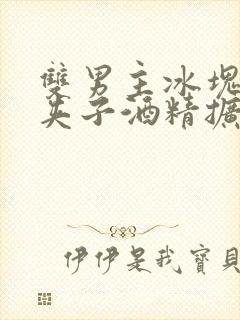 雙男主冰塊
夾子酒精擴
伊伊是我寶貝